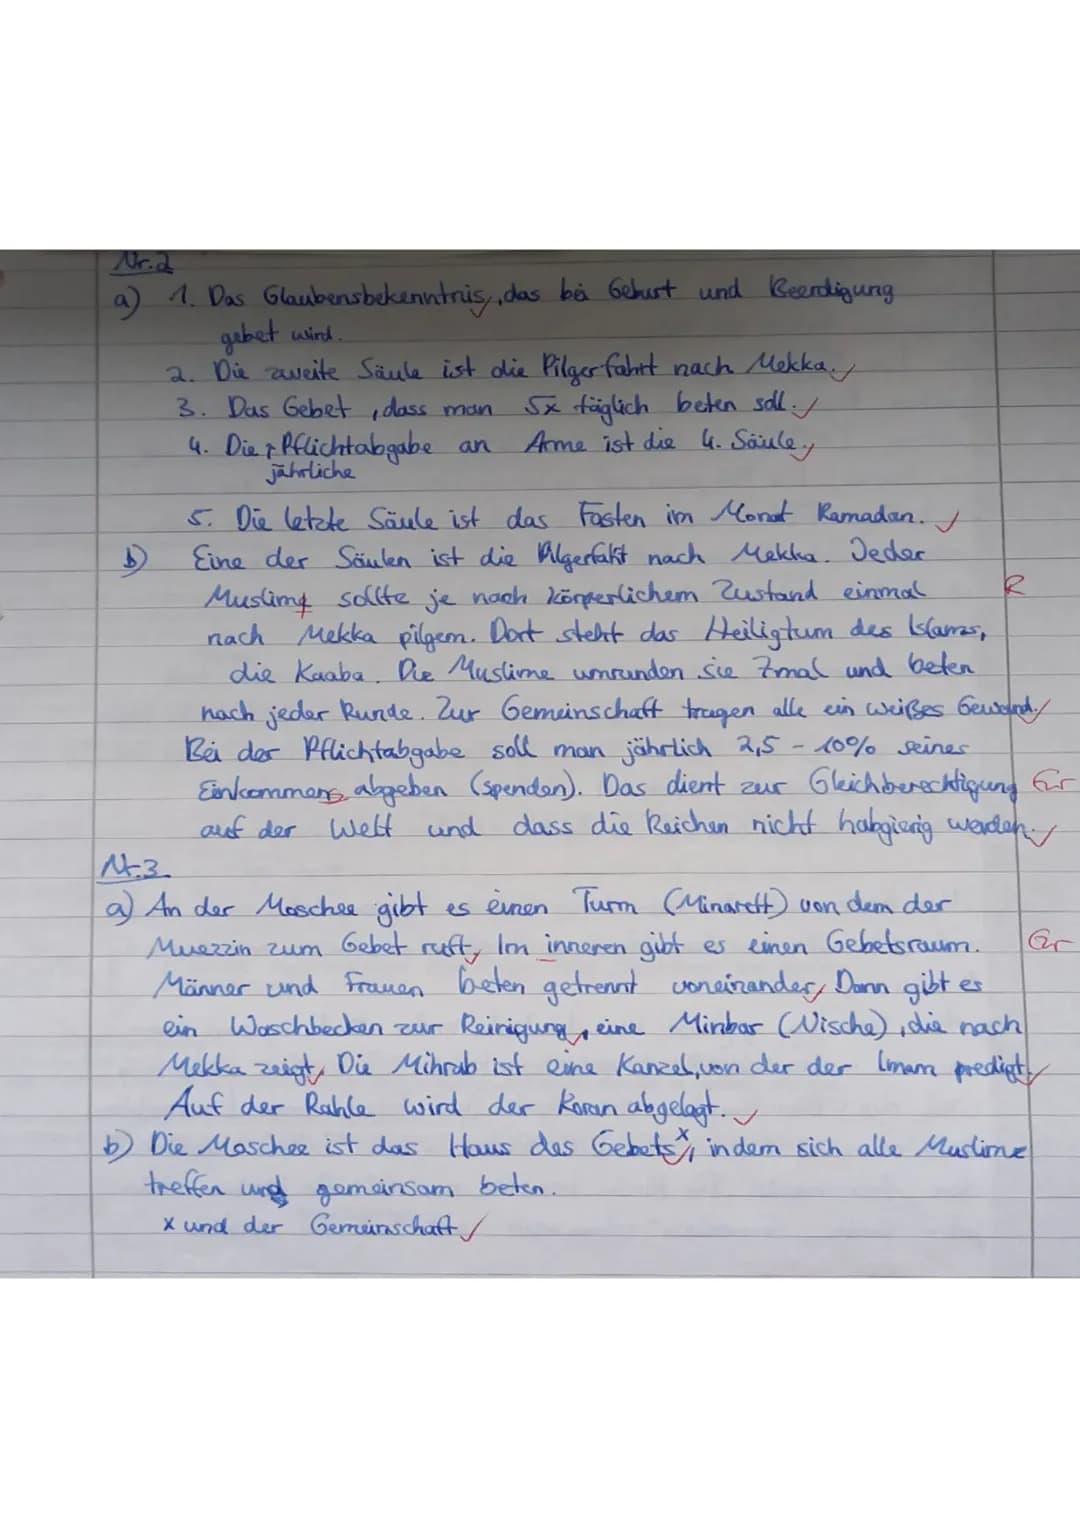 Nr.2
a) 1. Das Glaubensbekenntnis, das bei Geburt und Beerdigung
gebet wird.
2. Die zweite Säule ist die Pilgerfahrt nach Mekka.
3. Das Gebet, dass man 5x täglich beten soll.
4. Die Pflichtabgabe an Arme ist die 4. Säule.
jährliche
5. Die letzte Säule ist das Fasten im Monat Ramadan.
b) Eine der Säulen ist die Pilgerfakt nach Mekka. Jeder
Muslim sollte je nach körperlichem Zustand einmal R
nach Mekka pilgern. Dort steht das Heiligtum des Islams,
die Kaaba. Die Muslime umrunden sie 7mal und beten
nach jeder Runde. Zur Gemeinschaft tragen alle ein weißes Gewand.
Bei der Pflichtabgabe soll man jährlich 2,5 - 10% seines
Einkommens abgeben (spenden). Das dient zur Gleichberechtigung Gr
auf der Welt und dass die Reichen nicht habgierig werden.
Nr.3
a) An der Moschee gibt es einen Turm (Minarett) von dem der
Muezzin zum Gebet ruft, Im inneren gibt es einen Gebetsraum. Gr
Männer und Frauen beten getrennt voneinander, Dann gibt es
ein Waschbecken zur Reinigung, eine Minbar (Nische), die nach
Mekka zeigt, Die Mihrab ist eine Kanzel, von der der Imam predigt.
Auf der Rahle wird der Koran abgelegt.
b) Die Moschee ist das Haus des Gebets x, indem sich alle Muslime
treffen und gemeinsam beten.
x und der Gemeinschaft